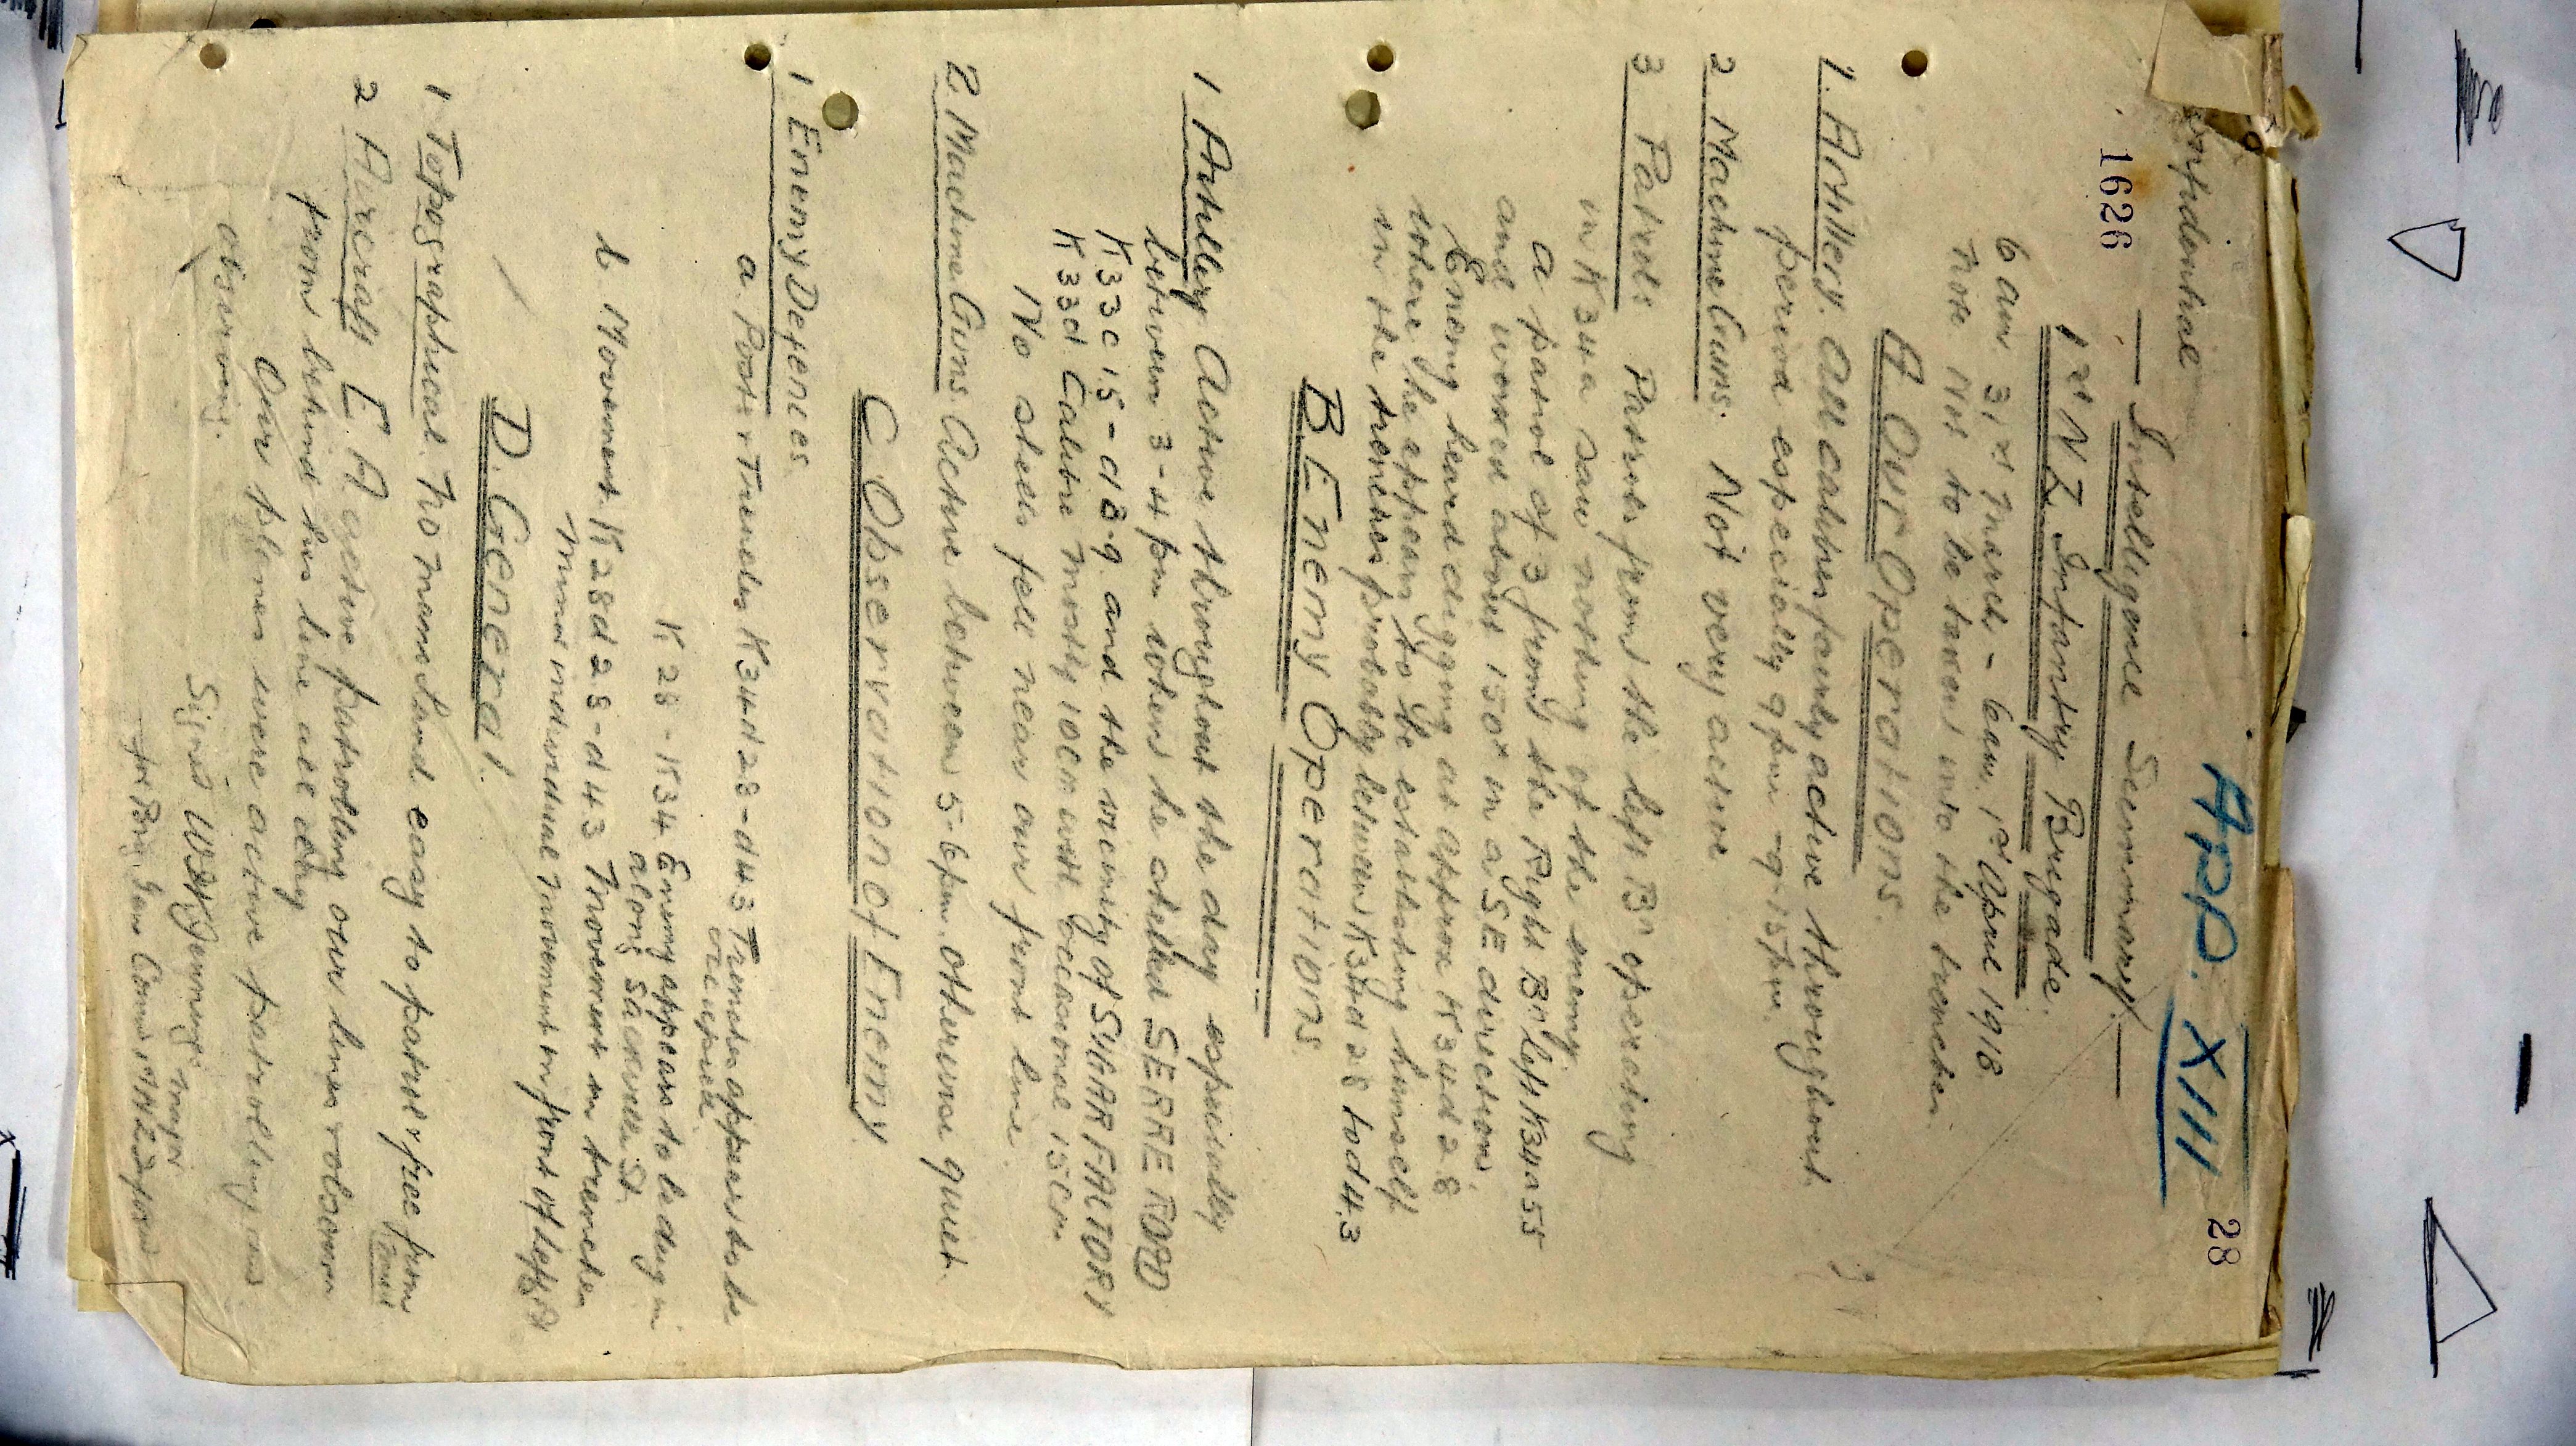 APP. XIII
28
Confidential
1626
— Intelligence Summary. —
1st N Z Infantry Brigade.
6 am 31st March - 6 am. 1st April 1918.
Note Not to be taken into the trenches.
A Our Operations.
1. Artillery. All calibres fairly active throughout
period especially 9 pm - 9-15 pm.
2 Machine Guns. Not very active
3 Patrols Patrols from the left Bn operating
in K34a saw nothing of the enemy.
A patrol of 3 from the Right Bn left K34a 55
and worked about 150x in a SE direction.
Enemy heard digging at approx K34d 28
where he appears to be establishing himself
in the trenches probably between K34d 28 to d 4.3
B Enemy Operations.
1 Artillery Active throughout the day especially
between 3-4 pm when he shelled SERRE ROAD
K33c 1.5 - d 8.9. and the vicinity of SUGAR FACTORY
K33d. Calibre mostly 10cm with occasional 15cm
No shells fell near our front line
2. Machine Guns. Active between 5-6 pm. otherwise quiet.
C Observation of Enemy
1 Enemy Defences.
a. Posts & Trenches K34d 28 - d 43 Trenches appears to be
occupied.
K 28 - K34. Enemy appears to be dug in
along Sackville St.
b. Movement. K28d 28 - d 43 Movement in trenches
Minor individual movement in front of left Bn
D. General.
1 Topographical. No mans Land easy to patrol & free from
2 Aircraft E.A active patrolling our lines &
from behind his line all day
Our planes were active patrolling and
observing.
Signed W. Jennings Major
for Brig. Gen Comdg 1 NZ Inf Bde